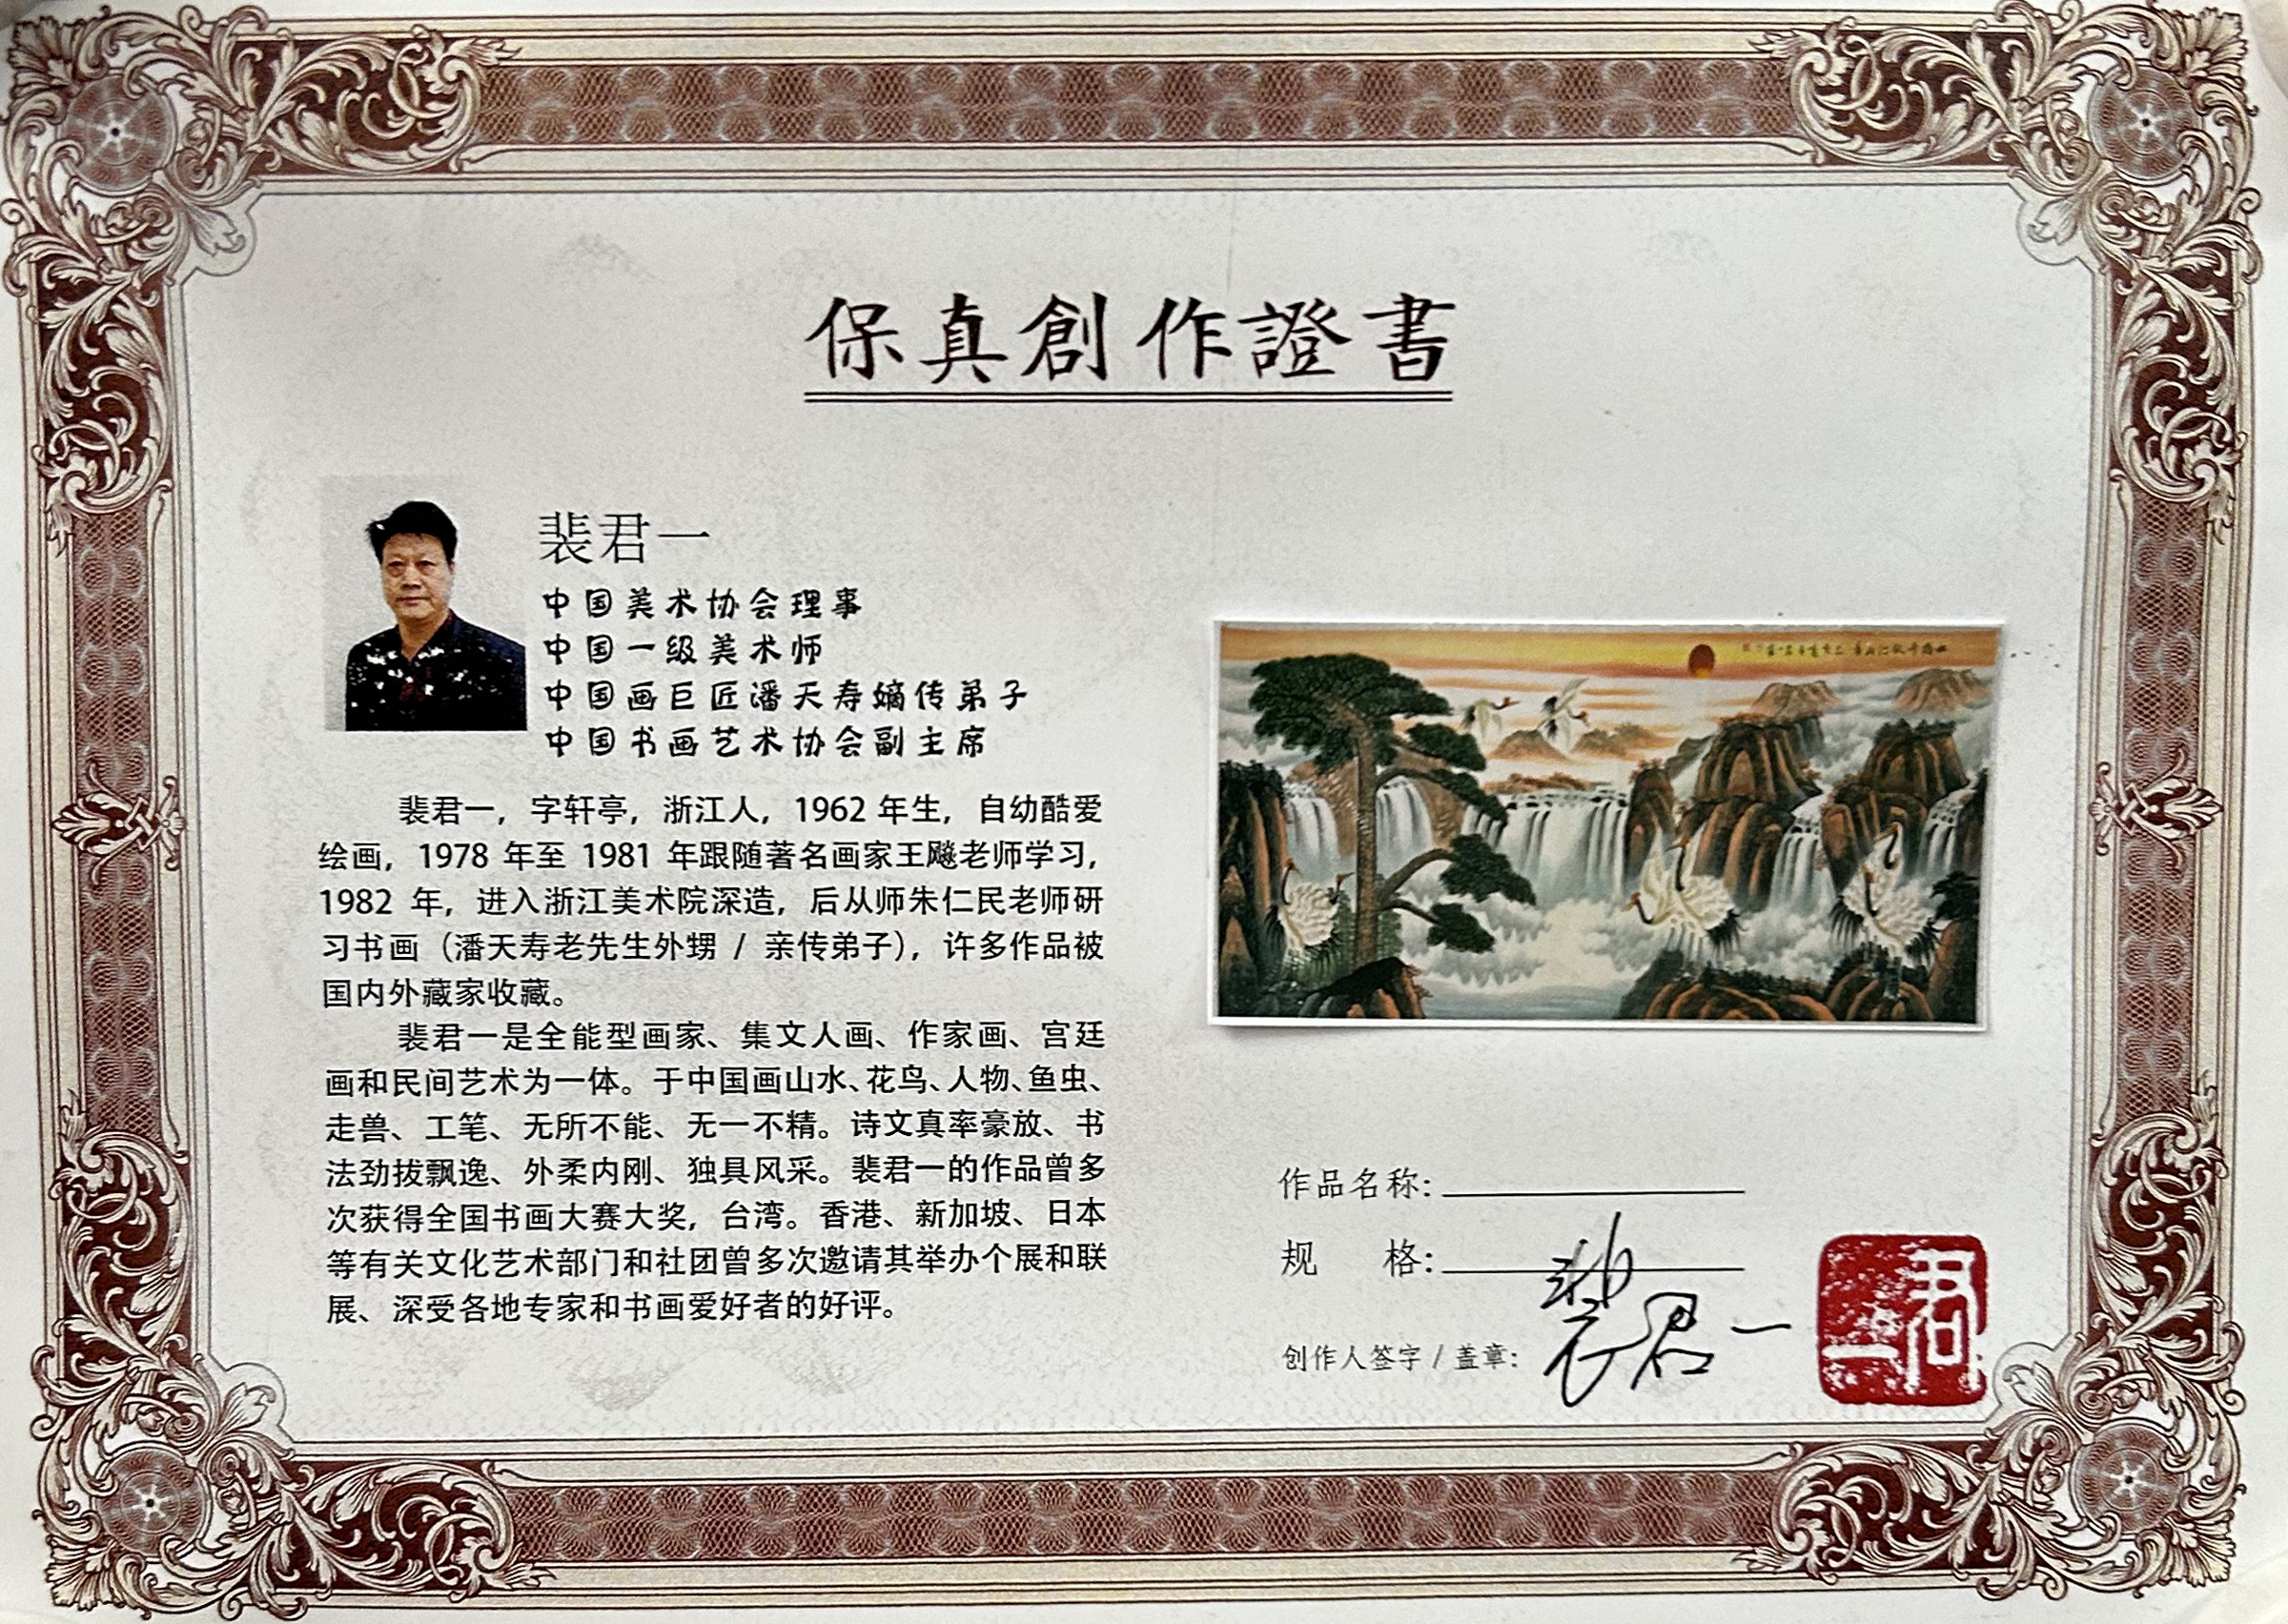 保真創作證書
裴君一
中国美术协会理事
中国一级美术师
中国画巨匠潘天寿嫡传弟子
中国书画艺术协会副主席
裴君一，字轩亭，浙江人，1962 年生，自幼酷爱
绘画，1978 年至 1981 年跟随著名画家王飚老师学习，
1982 年，进入浙江美术院深造，后从师朱仁民老师研
习书画（潘天寿老先生外甥 / 亲传弟子），许多作品被
国内外藏家收藏。
裴君一是全能型画家、集文人画、作家画、宫廷
画和民间艺术为一体。于中国画山水、花鸟、人物、鱼虫、
走兽、工笔、无所不能、无一不精。诗文真率豪放、书
法劲拔飘逸、外柔内刚、独具风采。裴君一的作品曾多
次获得全国书画大赛大奖，台湾。香港、新加坡、日本
等有关文化艺术部门和社团曾多次邀请其举办个展和联
展、深受各地专家和书画爱好者的好评。
作品名称：
规 格：
创作人签字 / 盖章：
裴君一
君一